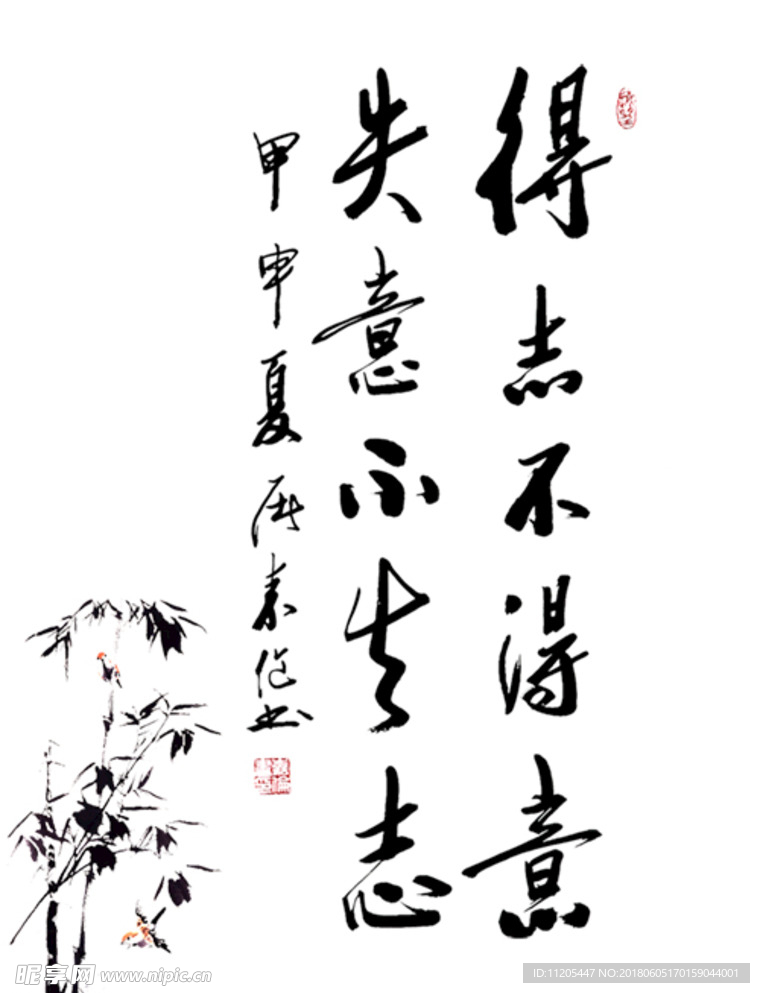 得志不得意
失意不失志
甲申夏
书
昵享网 www.nipic.cn
ID:11205447 NO:20180605170159044001